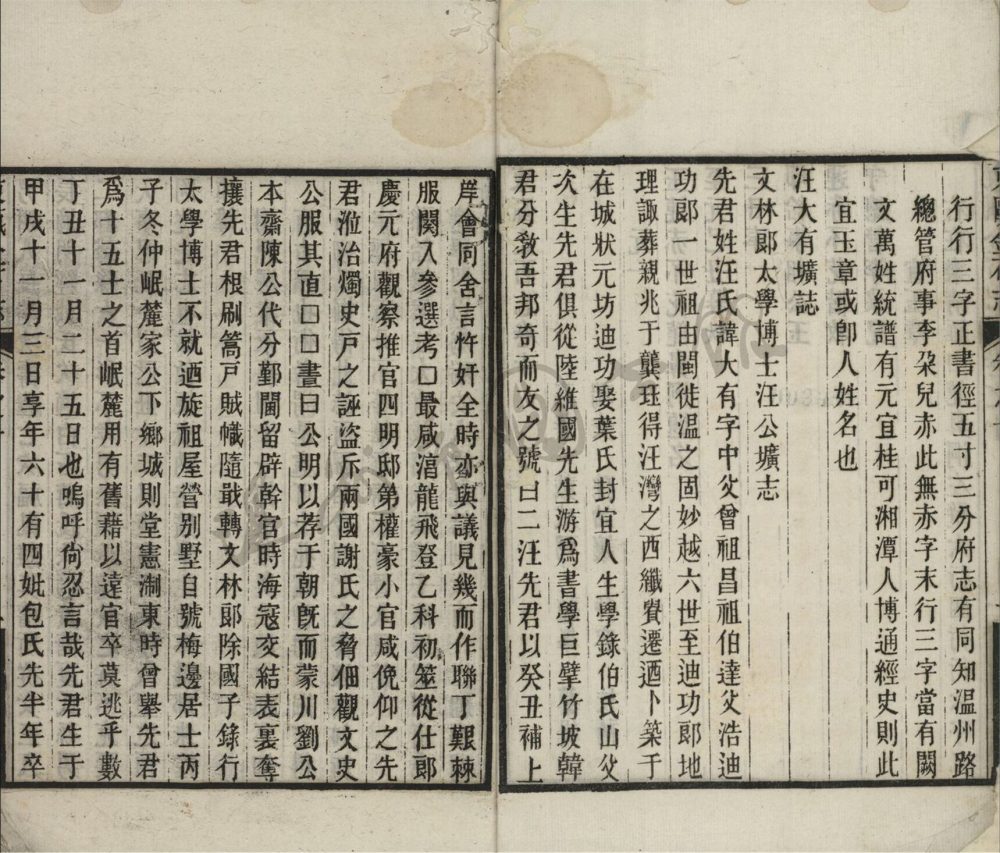 行行三字正書徑五寸三分府志有同知温州路
總管府事李朶兒赤此無赤字末行三字當有闕
文萬姓統譜有元宜桂可湘潭人博通經史則此
宜玉章或卽人姓名也
汪大有壙誌
文林郎太學博士汪公壙志
先君姓汪氏諱大有字中父曾祖昌祖伯達父浩迪
功郎一世祖由閩徙温之固妙越六世至迪功郎地
理諏葬親兆于龔玨得汪灣之西纖賷遷迺卜築于
在城狀元坊迪功娶葉氏封宜人生學錄伯氏山父
次生先君俱從陸維國先生游爲書學巨擘竹坡韓
君分敎吾邦奇而友之號曰二汪先君以癸丑補上
庠會同舍言忤奸全時亦與議見幾而作聯丁艱棘
服闋入參選考口最咸淯龍飛登乙科初筮從仕郎
慶元府觀察推官四明邸弟權豪小官咸俛仰之先
君涖治燭史戸之誣盜斥兩國謝氏之脅佃觀文史
公服其直口口晝曰公明以荐于朝旣而蒙川劉公
本齋陳公代分鄞閫留辟幹官時海寇交結表裏奪
攘先君根刷篙戸賊幟隨戢轉文林郎除國子錄行
太學博士不就迺旋祖屋營别墅自號梅邊居士丙
子冬仲岷麓家公下鄉城則堂憲淛東時曾舉先君
爲十五士之首岷麓用有舊藉以遠官卒莫逃乎數
丁丑十一月二十五日也嗚呼尙忍言哉先君生于
甲戌十一月三日享年六十有四妣包氏先半年卒